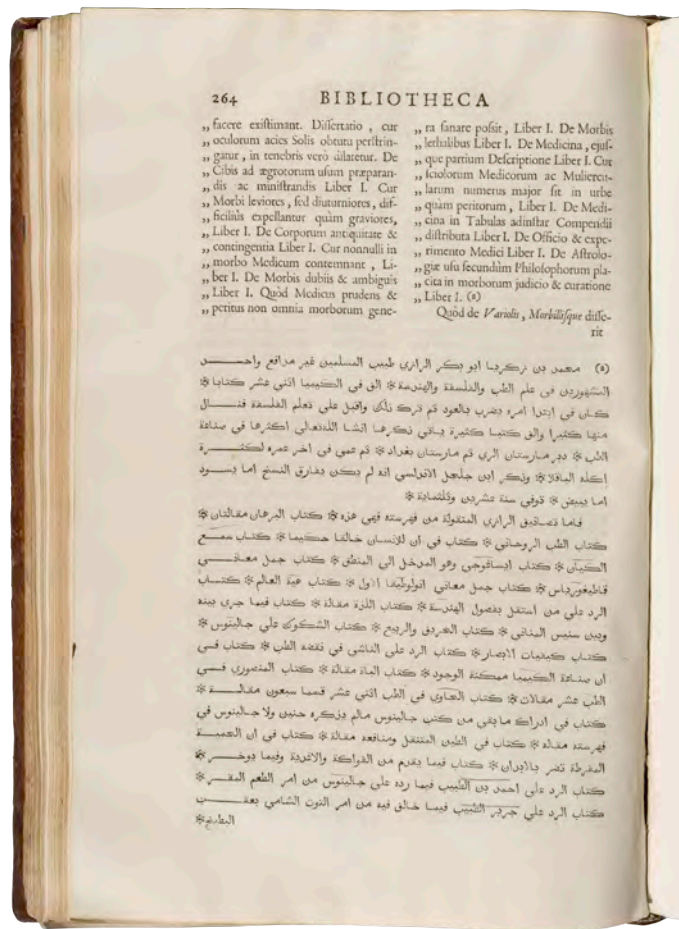 264 BIBLIOTHECA
„ facere exiſtimant. Diſſertatio , cur
„ oculorum acies Solis obtutu perſtrin-
„ gatur , in tenebris verò dilatetur. De
„ Cibis ad ægrotorum uſum præparan-
„ dis ac miniſtrandis Liber I. Cur
„ Morbi leviores , ſed diuturniores , dif-
„ ficiliùs expellantur quàm graviores,
„ Liber I. De Corporum antiquitate &
„ contingentia Liber I. Cur nonnulli in
„ morbo Medicum contemnant , Li-
„ ber I. De Morbis dubiis & ambiguis
„ Liber I. Quòd Medicus prudens &
„ peritus non omnia morborum gene-
„ ra ſanare poſsit , Liber I. De Morbis
„ lethalibus Liber I. De Medicina , ejuſ-
„ que partium Deſcriptione Liber I. Cur
„ ſciolorum Medicorum ac Muliercu-
„ larum numerus major ſit in urbe
„ quàm peritorum , Liber I. De Medi-
„ cina in Tabulas adinſtar Compendii
„ diſtributa Liber I. De Officio & expe-
„ rimento Medici Liber I. De Aſtrolo-
„ giæ uſu ſecundùm Philoſophorum pla-
„ cita in morborum judicio & curatione
„ Liber I. (a)
Quòd de Variolis , Morbiliſque diſſe-
rit
(a) محمد بن زكريا ابو بكر الرازي طبيب المسلمين غير مدافع واحد
المشهورين في علم الطب والفلسفة والهندسة * الف في الكيميا اثني عشر كتابا *
كان في ابتدا امره يضرب بالعود ثم ترك ذلك واقبل علي تعلم الفلسفة فنال
منها كثيرا والف كتبا كثيرة ياتي ذكرها انشا اللهتعالي اكثرها في صناعة
الطب * دبر مارستان الري ثم مارستان بغداد * ثم عمي في اخر عمره لكثرة
اكله الباقلا * وذكر ابن جلجل الاندلسي انه لم يكن يفارق النسخ اما يسود
اما يبيض * توفي سنة عشرين وثلثماية *
فاما تصانيف الرازي المنقولة من فهرسته فهي هذه * كتاب البرهان مقالتان *
كتاب الطب الروحاني * كتاب في ان للانسان خالقا حكيما * كتاب سمع
الكيان * كتاب ايساغوجي وهو المدخل الي المنطق * كتاب جمل معاني
قاطيغورياس * كتاب جمل معاني انولوطيقا الاول * كتاب هية العالم * كتاب
الرد علي من استقل بفصول الهندسة * كتاب اللذة مقالة * كتاب فيما جري بينه
وبين سنيس المناني * كتاب الخريف والربيع * كتاب الشكوك علي جالينوس *
كتاب كيفيات الابصار * كتاب الرد علي الناشي في نقضه الطب * كتاب في
ان صناعة الكيميا ممكنة الوجود * كتاب الباة مقالة * كتاب المنصوري في
الطب عشر مقالات * كتاب الحاوي في الطب اثني عشر قسما سبعون مقالة *
كتاب في ادراك ما بقي من كتب جالينوس مالم يذكره حنين ولا جالينوس في
فهرسته مقالة * كتاب في الطين المتنقل ومنافعه مقالة * كتاب في ان الحمية
المفرطة تضر بالابدان * كتاب فيما يقدم من الفواكة والاغذية وفيما يوخر *
كتاب الرد علي احمد بن الطبيب فيما رده علي جالينوس من امر الطعم المر *
كتاب الرد علي جرير الطبيب فيما خالف فيه من امر التوت الشامي بعقب
البطيخ *